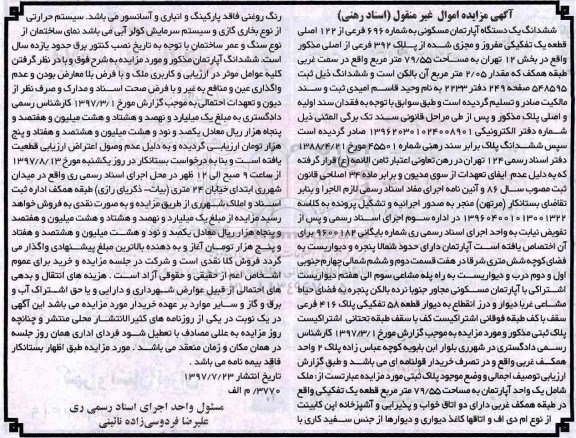 آگهی مزایده اموال غیر منقول (اسناد رهنی)
ششدانگ یک دستگاه آپارتمان مسکونی به شماره ۶۹۶ فرعی از ۱۲۲ اصلی
قطعه یک تفکیکی مفروز و مجزی شده از پلاک ۳۹۲ فرعی از اصلی مذکور
واقع در بخش ۱۲ تهران به مساحت ۷۹/۵۵ متر مربع واقع در سمت غربی
طبقه همکف که مقدار ۲/۰۵ متر مربع آن بالکن است و ششدانگ ذیل ثبت
۵۴۸۵۹۵ صفحه ۲۴۹ دفتر ۲۲۳۳ به نام وحید قاسم امیدی ثبت و سند
مالکیت صادر و تسلیم گردیده است و طبق سوابق با توجه به فقدان سند اولیه
و اصلی پلاک مذکور و پس از طی مراحل قانونی سند تک برگی المثنی ذیل
شماره دفتر الکترونیکی ۱۳۹۶۲۰۳۰۱۰۲۴۰۰۸۹۰۱ صادر گردیده است
سپس ششدانگ پلاک برابر سند رهنی شماره ۴۵۵۰۱ مورخ ۱۳۸۸/۴/۲۱
دفتر اسناد رسمی ۱۲۴ تهران در رهن تعاونی اعتبار ثامن الائمه (ع) قرار گرفته
که به دلیل عدم ایفای تعهدات از سوی مدیون و برابر ماده ۳۴ اصلاحی قانون
ثبت مصوب سال ۸۶ و آئین نامه اجرای مفاد اسناد رسمی لازم الاجرا و بنابر
تقاضای بستانکار (مرتهن) منجر به صدور اجرائیه و تشکیل پرونده به کلاسه
۱۳۹۶۰۴۰۰۱۰۱۳۰۰۱۳۲۲ در اداره سوم اجرای اسناد رسمی و پس از
تفویض نیابت به واحد اجرای اسناد رسمی ری شماره بایگانی ۹۶۰۰۱۸۲ برای
آن اختصاص یافته است آپارتمان دارای حدود شمالا پنجره و دیواریست به
فضای کوچه شش متری شرقا در هفت قسمت دوم و ششم شمالی چهارم جنوبی
اول و دوم درب و دیواریست به راه پله مشاعی سوم الی هفتم دیواریست
اشتراکی با آپارتمان مسکونی مجاور جنوبا نرده بالکن پنجره به فضای حیاط
مشاعی غربا دیوار و درز انقطاع به دیوار قطعه ۵۸ تفکیکی پلاک ۴۱۶ فرعی
سقف با کف طبقه فوقانی اشتراکیست کف با سقف طبقه تحتانی اشتراکیست
پلاک ثبتی مذکور و مورد مزایده به موجب گزارش مورخ ۱۳۹۷/۳/۱ کارشناس
رسمی دادگستری در شهرری بلوار ابن بابویه کوچه عباس زاده پلاک ۲ واحد
همکف غربی واقع و در تصرف خریدار قولنامه ای می باشد و طبق گزارش
ارزیابی توصیف اجمالی و وضع موجود پلاک ثبتی مورد مزایده عبارتست از: ملک
شامل یک واحد آپارتمان به مساحت ۷۹/۵۵ متر مربع قطعه یک تفکیکی واقع
در طبقه همکف غربی دارای دو اتاق خواب و پذیرایی و آشپزخانه اپن کابینت
از نوع ام دی اف و اتاقها کاغذ دیواری و دیوارها از جنس سفید کاری با
رنگ روغنی فاقد پارکینگ و انباری و آسانسور می باشد. سیستم حرارتی
از نوع بخاری گازی و سیستم سرمایش کولر آبی می باشد نمای ساختمان از
نوع سنگ و عمر ساختمان با توجه به تاریخ نصب کنتور برق حدود یازده سال
است. ششدانگ آپارتمان مذکور و مورد مزایده به شرح فوق و با در نظر گرفتن
کلیه عوامل موثر در ارزیابی و کاربری ملک و با فرض بلا معارض بودن و عدم
واگذاری عین و منافع به غیر و با فرض صحت اسناد و مدارک و صرف نظر از
دیون و تعهدات احتمالی به موجب گزارش مورخ ۱۳۹۷/۳/۱ کارشناس رسمی
دادگستری به مبلغ یک میلیارد و نهصد و هشتاد و هشت میلیون و هفتصد و
پنجاه هزار ریال معادل یکصد و نود و هشت میلیون و هشتصد و هفتاد و پنج
هزار تومان ارزیابی گردیده و به دلیل عدم وصول اعتراض ارزیابی قطعیت
یافته است و بنا به درخواست بستانکار در روز یکشنبه مورخ ۱۳۹۷/۸/۱۳
از ساعت ۹ صبح الی ۱۲ ظهر در محل اجرای اسناد رسمی ری واقع در میدان
شهرری ابتدای خیابان ۲۴ متری (بیات- ذکریای رازی) طبقه همکف اداره ثبت
اسناد و املاک شهرری از طریق مزایده و به صورت نقدی به فروش خواهد
رسید مزایده از مبلغ یک میلیارد و نهصد و هشتاد و هشت میلیون و هفتصد
و پنجاه هزار ریال معادل یکصد و نود و هشت میلیون و هشتصد و هفتاد
و پنج هزار تومان آغاز و به دهنده بالاترین مبلغ پیشنهادی واگذار می
گردد فروش کلا نقدی است و شرکت در جلسه مزایده و خرید برای عموم
اشخاص اعم از حقیقی و حقوقی آزاد است . هزینه های انتقال و بدهی
های احتمالی از قبیل عوارض شهرداری و دارایی و یا حق اشتراک آب و
برق و گاز و سایر موارد بر عهده خریدار مورد مزایده می باشد این آگهی
در یک نوبت در یکی از روزنامه های کثیر الانتشار محلی منتشر و چنانچه
روز مزایده به عللی مصادف با تعطیل شود فردای اداری همان روز جلسه
در همان مکان و زمان منعقد می باشد . مورد مزایده طبق اظهار بستانکار
فاقد بیمه نامه می باشد .
تاریخ انتشار ۱۳۹۷/۷/۲۳
۳۷۷۰/ م الف
مسئول واحد اجرای اسناد رسمی ری
علیرضا فردوسی زاده نائینی